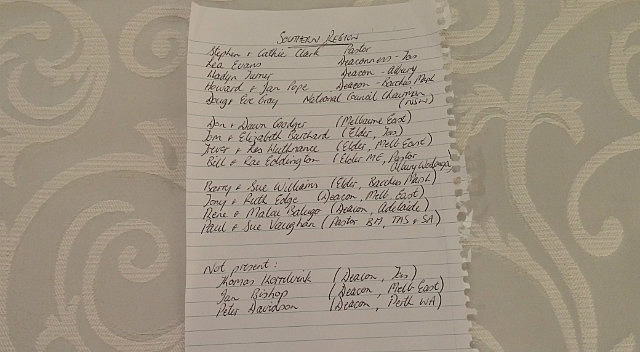 SOUTHERN REGION
Stephen + Cathie Clark Pastor
Lea Evans Deaconness - Tas
Madyn Turner Deacon - Albury
Howard + Jan Pope Deacon - Bacchus Marsh
Doug + Eve Gray National Council Chairman
(NSW)
Don + Dawn Goodger (Melbourne East)
Tom + Elizabeth Burchard (Elder, Tas)
Trevor + Res (Elder, Melb East)
Bill + Rae Eddington (Elder ME, Pastor
Albury Wodonga)
Barry + Sue Williams (Elder, Bacchus Marsh)
Tony + Ruth Edge (Deacon, Melb East)
Rene + Malou (Deacon, Adelaide)
Paul + Sue Vaughan (Pastor BM, TAS + SA)
Not present:
Thomas (Deacon, Tas)
Jan Bishop (Deacon, Melb East)
Peter Davidson (Deacon, Perth WA)